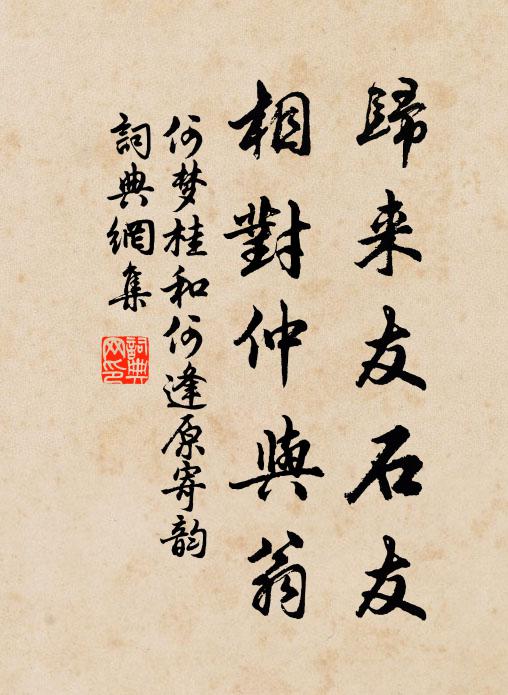 歸来友石友
相對仲與翁
何梦桂和何逢原寄韵
詞典網集
詞典网印